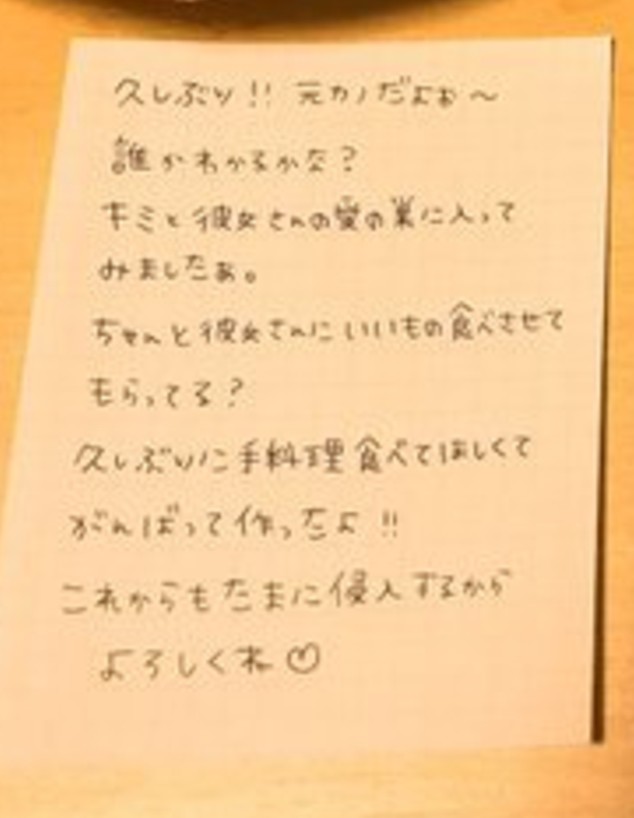 久しぶり!! 元カノだよぉ〜
誰かわかるかな?
キミと彼女さんの愛の巣に入って
みましたぁ。
ちゃんと彼女さんにいいもの食べさせて
もらってる?
久しぶりに手料理食べてほしくて
がんばって作ったよ!!
これからもたまに侵入するから
よろしくね♡